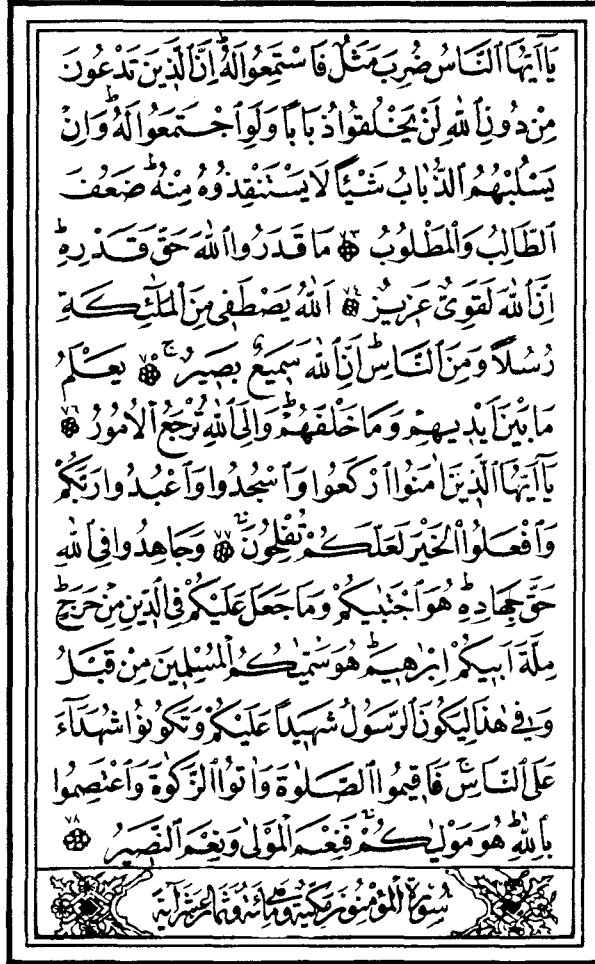 يَٓا اَيُّهَا النَّاسُ ضُرِبَ مَثَلٌ فَاسْتَمِعُوا لَهُۜ اِنَّ الَّذ۪ينَ تَدْعُونَ
مِنْ دُونِ اللّٰهِ لَنْ يَخْلُقُوا ذُبَاباً وَلَوِ اجْتَمَعُوا لَهُۜ وَاِنْ
يَسْلُبْهُمُ الذُّبَابُ شَيْـٔاً لَا يَسْتَنْقِذُوهُ مِنْهُۜ ضَعُفَ
الطَّالِبُ وَالْمَطْلُوبُ ﴿٧٣﴾ مَا قَدَرُوا اللّٰهَ حَقَّ قَدْرِه۪ۜ
اِنَّ اللّٰهَ لَقَوِيٌّ عَز۪يزٌ ﴿٧٤﴾ اَللّٰهُ يَصْطَف۪ي مِنَ الْمَلٰٓئِكَةِ
رُسُلاً وَمِنَ النَّاسِۜ اِنَّ اللّٰهَ سَم۪يعٌ بَص۪يرٌۚ ﴿٧٥﴾ يَعْلَمُ
مَا بَيْنَ اَيْد۪يهِمْ وَمَا خَلْفَهُمْۜ وَاِلَى اللّٰهِ تُرْجَعُ الْاُمُورُ ﴿٧٦﴾
يَٓا اَيُّهَا الَّذ۪ينَ اٰمَنُوا ارْكَعُوا وَاسْجُدُوا وَاعْبُدُوا رَبَّكُمْ
وَافْعَلُوا الْخَيْرَ لَعَلَّكُمْ تُفْلِحُونَۚ ﴿٧٧﴾ وَجَاهِدُوا فِي اللّٰهِ
حَقَّ جِهَادِه۪ۜ هُوَ اجْتَبٰيكُمْ وَمَا جَعَلَ عَلَيْكُمْ فِي الدّ۪ينِ مِنْ حَرَجٍۜ
مِلَّةَ اَب۪يكُمْ اِبْرٰه۪يمَۜ هُوَ سَمّٰيكُمُ الْمُسْلِم۪ينَ مِنْ قَبْلُ
وَف۪ي هٰذَا لِيَكُونَ الرَّسُولُ شَه۪يداً عَلَيْكُمْ وَتَكُونُوا شُهَدَٓاءَ
عَلَى النَّاسِۚ فَاَق۪يمُوا الصَّلٰوةَ وَاٰتُوا الزَّكٰوةَ وَاعْتَصِمُوا
بِاللّٰهِۜ هُوَ مَوْلٰيكُمْۚ فَنِعْمَ الْمَوْلٰى وَنِعْمَ النَّص۪يرُ ﴿٧٨﴾
سُورَةُ الْمُؤْمِنُونَ مَكِّيَّةٌ وَهِيَ مِائَةٌ وَثَمَانِ عَشْرَةَ اٰيَةً